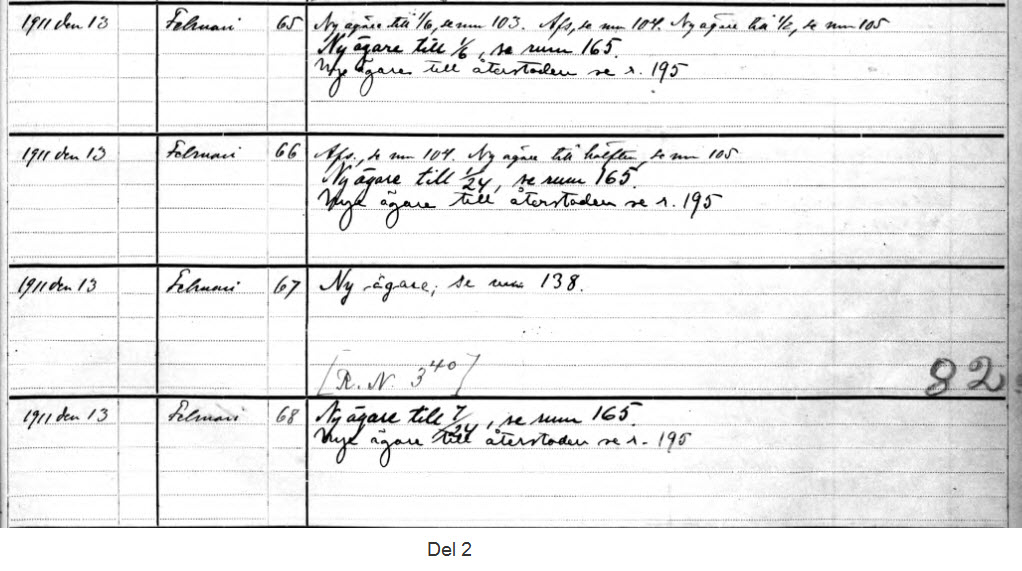 1911 den 13 Februari 65 Ny ägare till 1/6, se rum 103. Afs, se rum 104. Ny ägare till 1/2, se rum 105
Ny ägare till 1/6, se rum 165.
Nye ägare till återstoden se r. 195
1911 den 13 Februari 66 Afs., se rum 104. Ny ägare till hälften, se rum 105
Ny ägare till 1/24, se rum 165.
Nye ägare till återstoden se r. 195
1911 den 13 Februari 67 Ny ägare, se rum 138.
[R. N. 3 40] 82
1911 den 13 Februari 68 Ny ägare till 7/24, se rum 165.
Nye ägare till återstoden se r. 195
Del 2